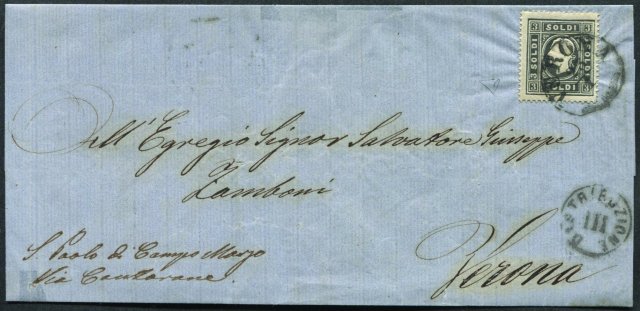 3 SOLDI 3
3 SOLDI
SOLDI 3
3 SOLDI 3
VERONA
All'Egregio Signor Salvatore Giuseppe
Zamboni
DISTRIBUZIONE
III
S. Paolo di Campo Marzo
Via Cantarane.
Verona